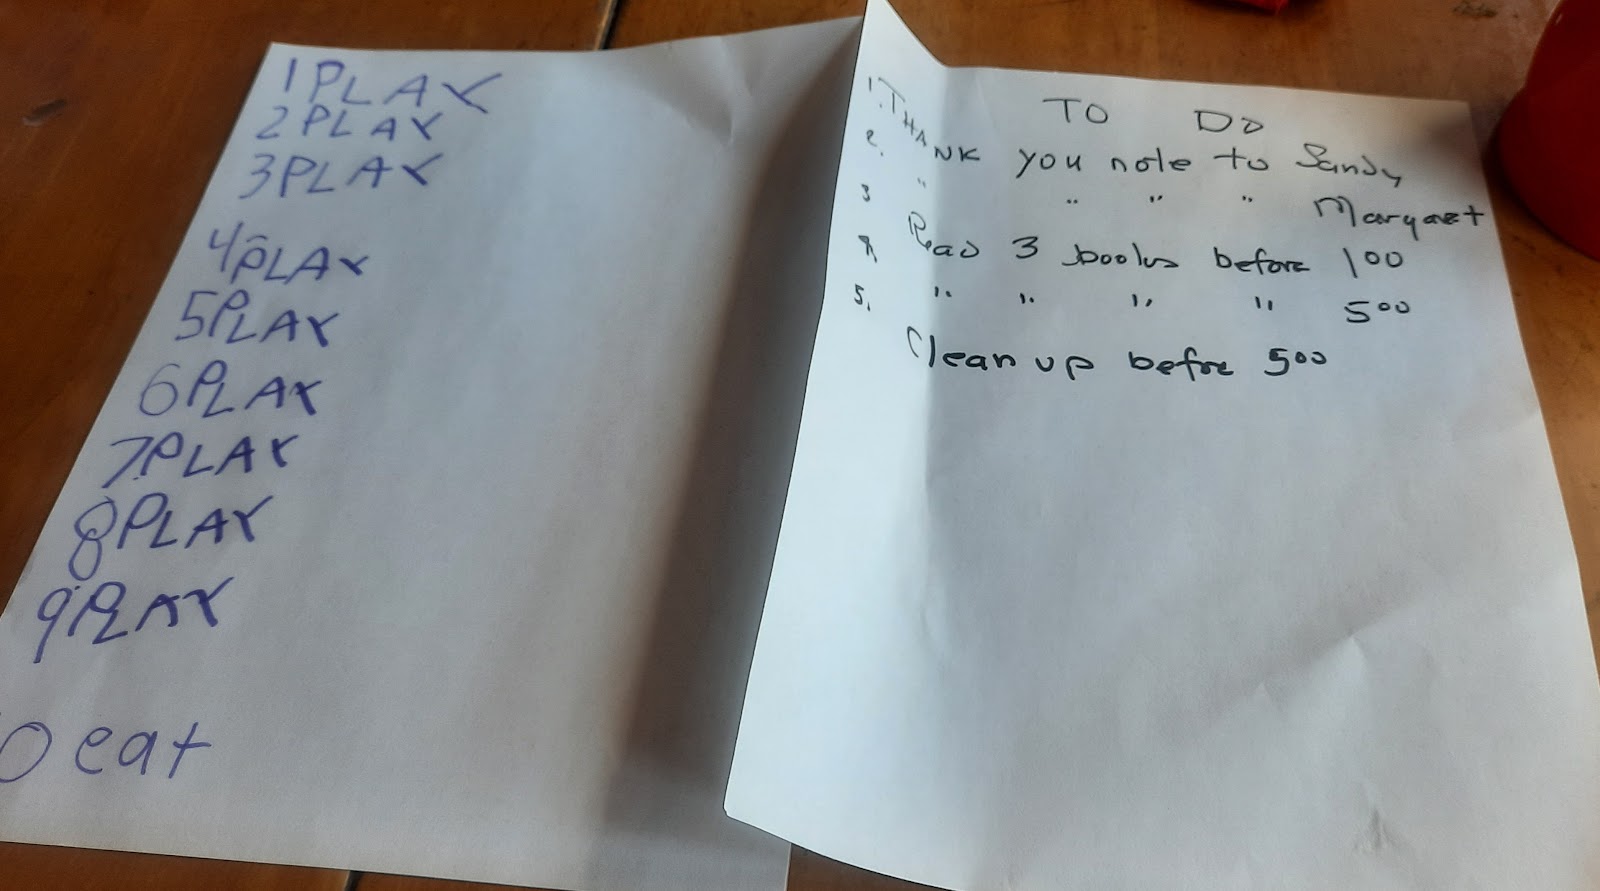 1 PLAY
2 PLAY
3 PLAY
4 PLAY
5 PLAY
6 PLAY
7. PLAY
8 PLAY
9 PLAY
10 eat
TO DO
1. THANK you note to Sandy
2. " " " " Margaret
3 Read 3 books before 1 00
4 " " " " 5 00
5. Clean up before 5 00